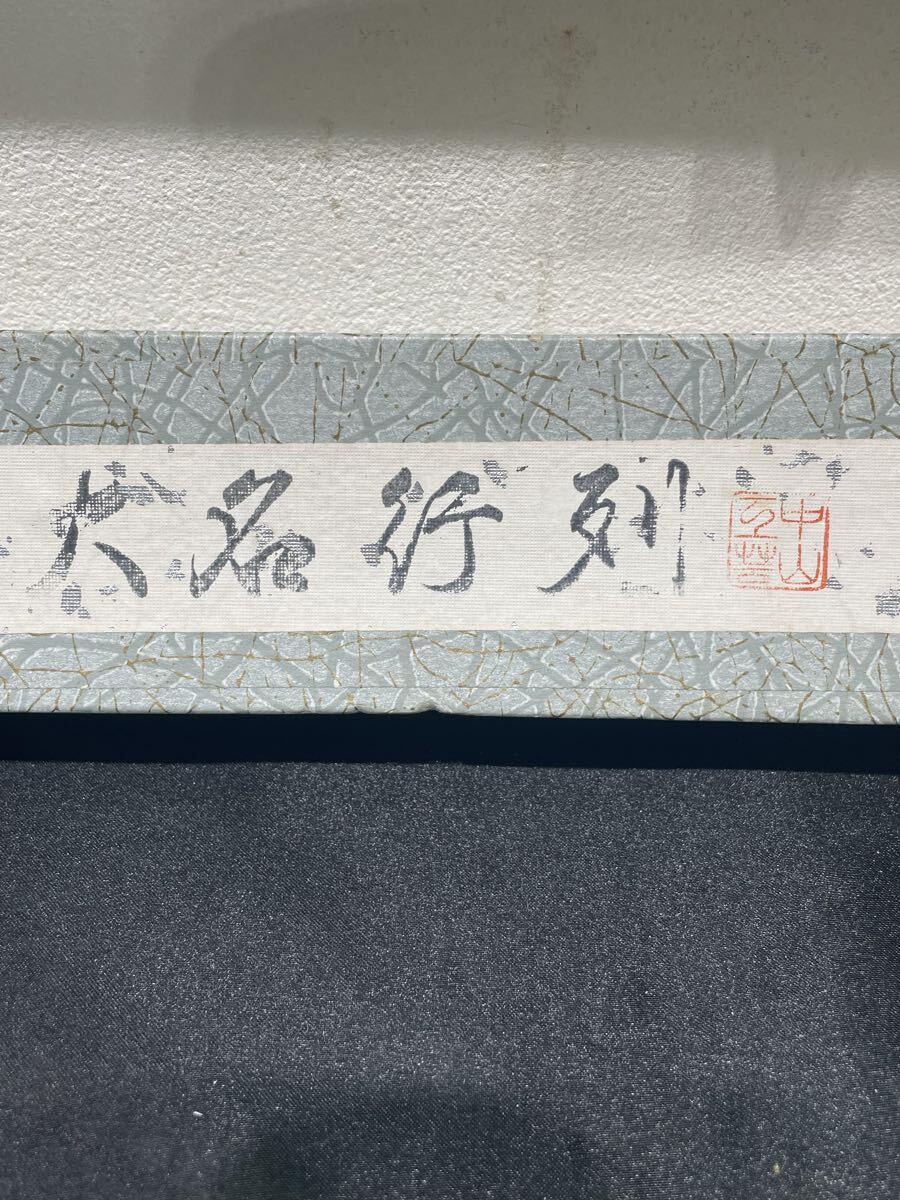 大名行列
中山